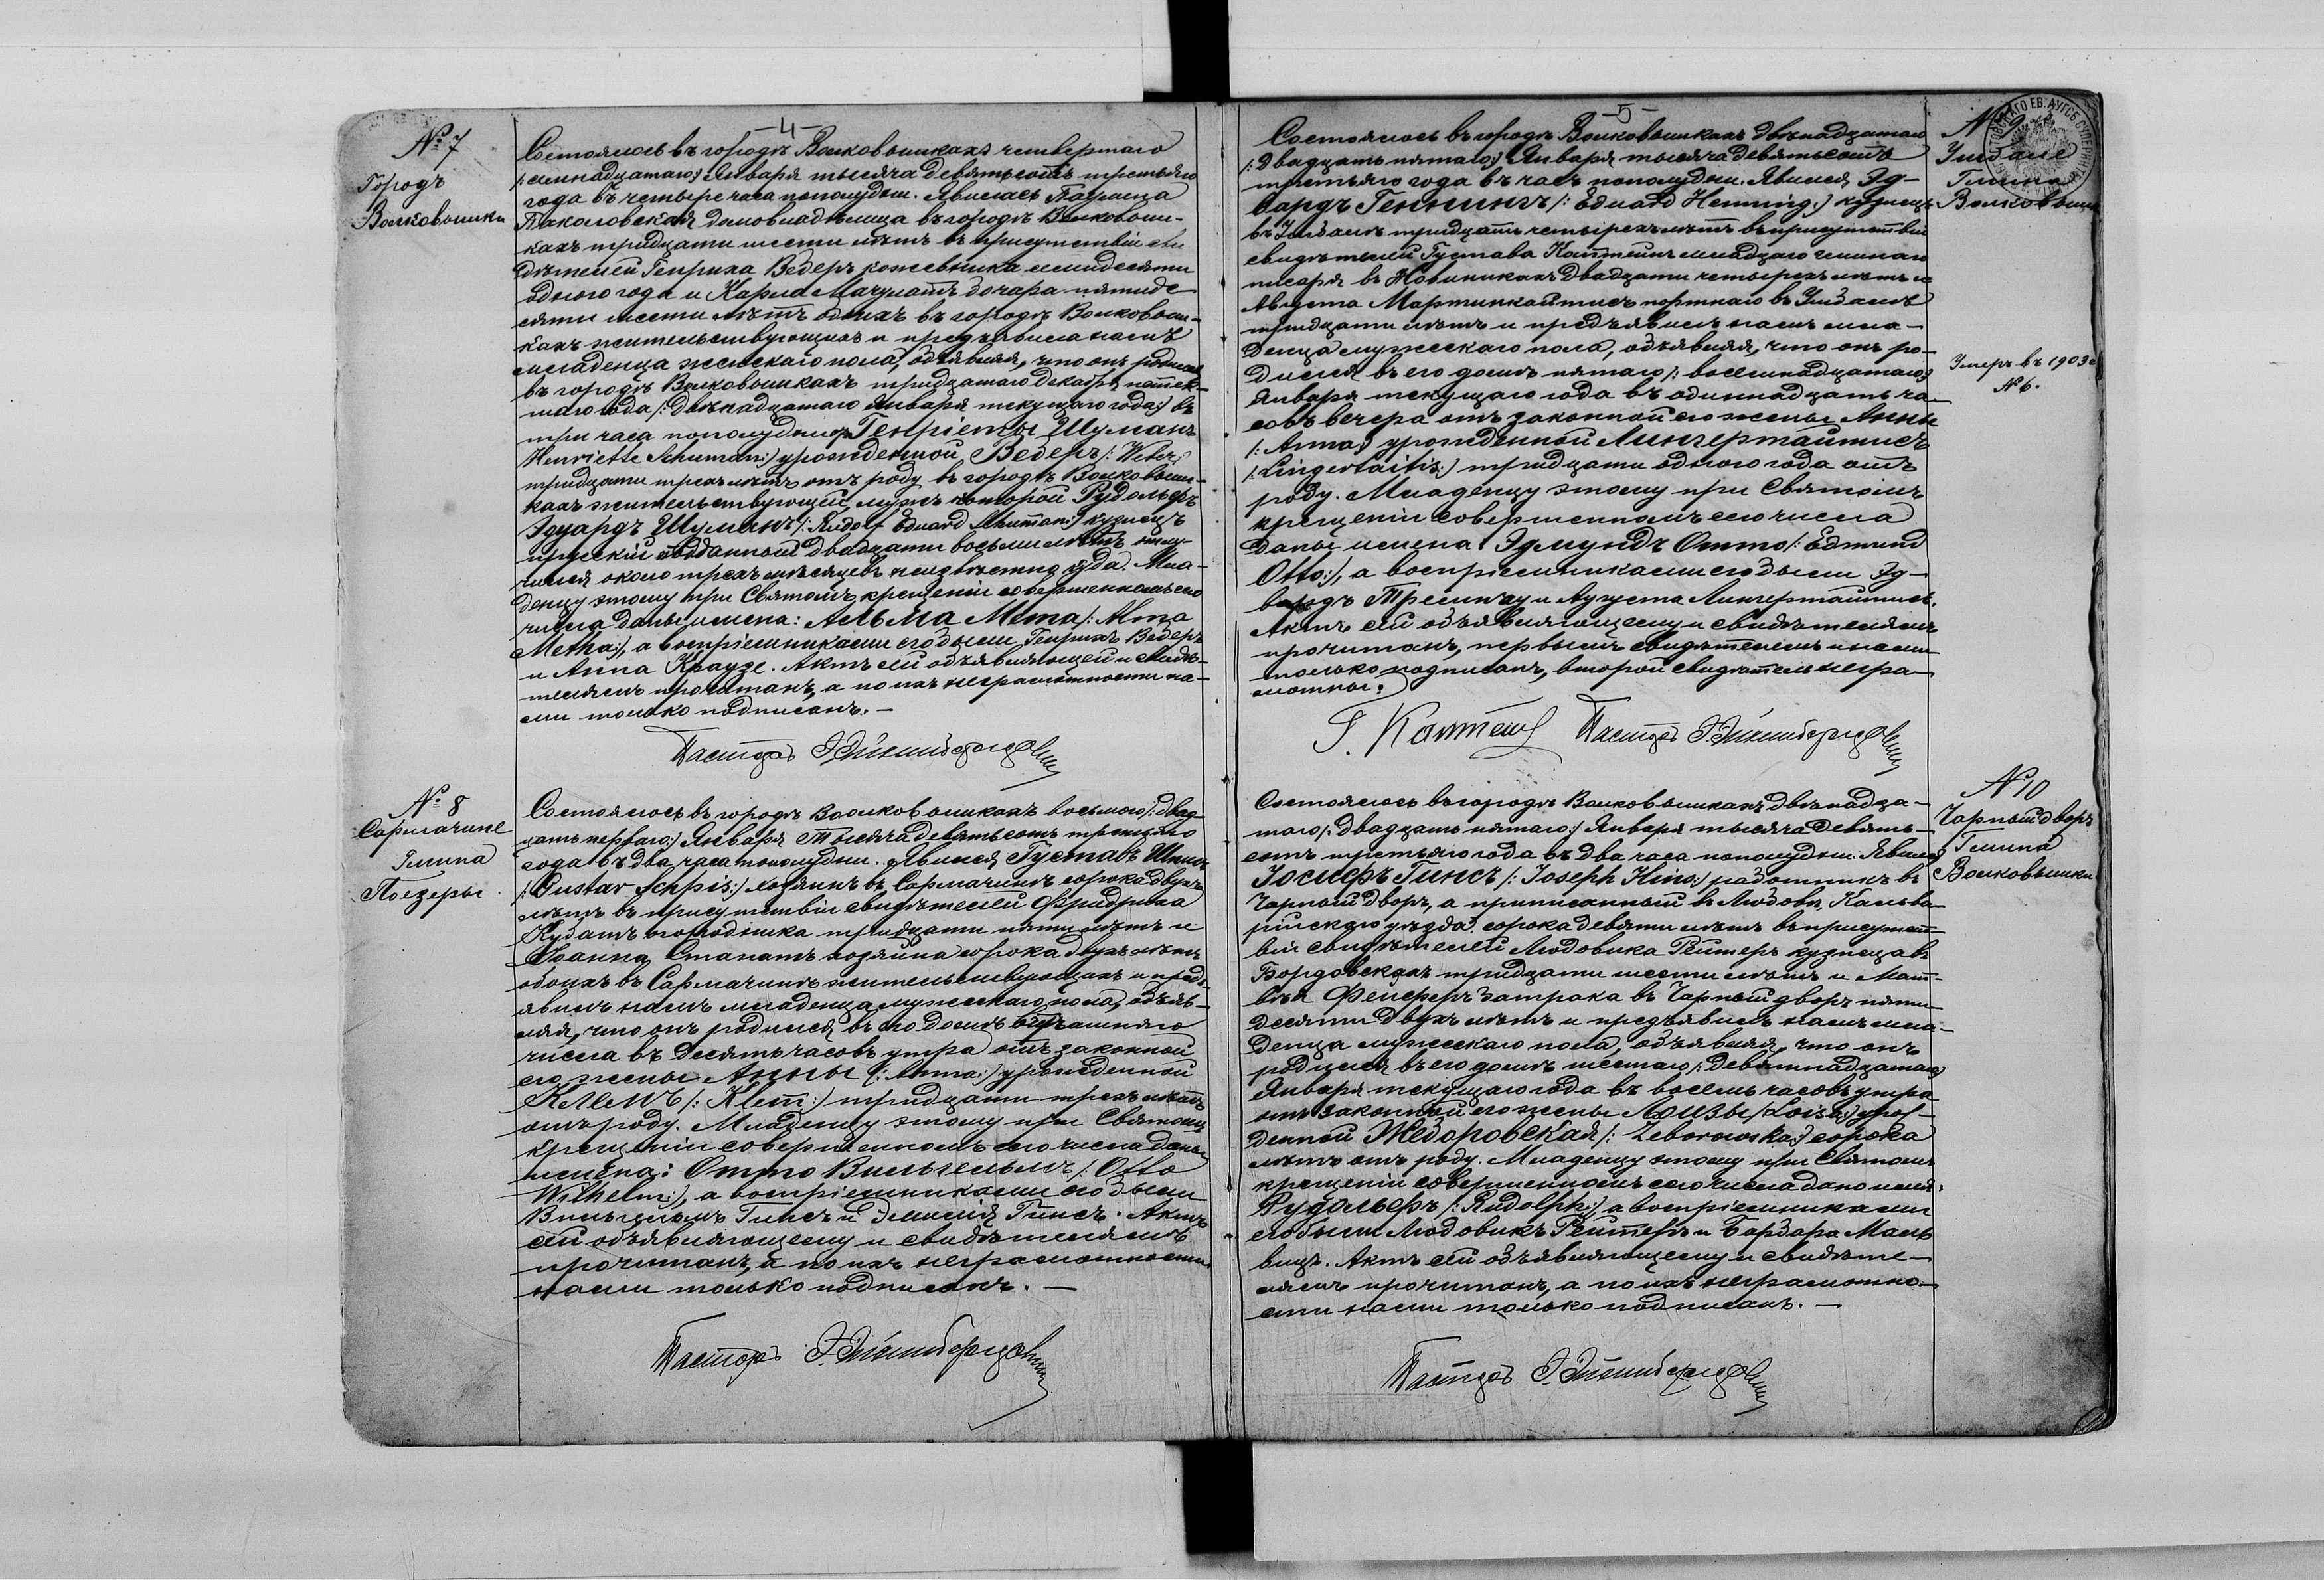 -4-
№ 7
Городъ
Волковышки
Состоялось въ городѣ Волковышкахъ четвертаго
/:семнадцатаго:/ Января тысяча девятьсотъ третьяго
года въ четыре часа пополудни. Явилась Паулина
домовладѣлица въ городѣ Волковыш-
кахъ тридцати шести лѣтъ въ присутствіи сви
дѣтелей Генриха Ведеръ кожевника семидесяти
одного года и Карла бочара пятиде-
сяти шести лѣтъ обоихъ въ городѣ Волковыш-
кахъ жительствующихъ и предъявила намъ
младенца женскаго пола, объявляя, что онъ родился
въ городѣ Волковышкахъ тридцатаго Декабря истек-
шаго года /:двѣнадцатаго Января текущаго года:/ въ
три часа пополудни отъ Генріеты Шуманъ
Henriette Schuman:/ урожденной Ведеръ /:Weder:/
тридцати трехъ лѣтъ отъ роду въ городѣ Волковыш-
кахъ жительствующей, мужъ которой Рудольфъ
Эдуардъ Шуманъ /:Rudolf Eduard Schuman:/ кузнецъ
прусскій подданный двадцати восьми лѣтъ отлу-
чился около трехъ мѣсяцевъ неизвѣстно куда. Мла-
денцу этому при Святомъ крещеніи совершенномъ сего
числа даны имена: Альма Мета /:Alma
Metha:/, а воспріемниками его были Генрихъ Ведеръ
и Анна Краузе. Актъ сей объявляющей и свидѣ-
телямъ прочитанъ, а по ихъ неграмотности на-
ми только подписанъ.—
Пасторъ
№ 8
Сармачине
Гмина
Поезеры.
Состоялось въ городѣ Волковышкахъ восьмого /:двад-
цать перваго:/ Января тысяча девятьсотъ третьяго
года въ два часа пополудни. Явился Густавъ Шписъ
/:Gustav Schpis:/ хозяинъ въ Сармачинѣ сорока двухъ
лѣтъ въ присутствіи свидѣтелей Фридриха
Кубатъ огородника тридцати пяти лѣтъ и
Іоанна Станатъ хозяина сорока двухъ лѣтъ
обоихъ въ Сармачинѣ жительствующихъ и предъ-
явилъ намъ младенца мужескаго пола, объяв-
ляя, что онъ родился въ его домѣ вчерашняго
числа въ десять часовъ утра отъ законной
его жены Анны /:Anna:/ урожденной
Клемъ /:Klem:/ тридцати трехъ лѣтъ
отъ роду. Младенцу этому при Святомъ
крещеніи совершенномъ сего числа даны
имена: Отто Вильгельмъ /:Otto
Wilhelm:/, а воспріемниками его были
Вильгельмъ Гинсъ и Эмилія Гинсъ. Актъ
сей объявляющему и свидѣтелямъ
прочитанъ, а по ихъ неграмотности
нами только подписанъ.—
Пасторъ
-5-
№ 9
Гмина
Волковышки
Умеръ въ 1903 г.
№ 6.
Состоялось въ городѣ Волковышкахъ двѣнадцатаго
/:двадцать пятаго:/ Января тысяча девятьсотъ
третьяго года въ часъ пополудни. Явился Эд-
вардъ Геннингъ /:Eduard Henning:/ кузнецъ
въ тридцати четырехъ лѣтъ въ присутствіи
свидѣтелей Густава младшаго гминнаго
писаря въ Новиникахъ двадцати четырехъ лѣтъ и
Августа Мартинкайтисъ портнаго въ
тридцати лѣтъ и предъявилъ намъ мла-
денца мужескаго пола, объявляя, что онъ ро-
дился въ его домѣ пятаго /:восемнадцатаго:/
Января текущаго года въ одиннадцать ча-
совъ вечера отъ законной его жены Анны
/:Anna:/ урожденной Лингертайтисъ
/:Lingertaitis:/ тридцати одного года отъ
роду. Младенцу этому при Святомъ
крещеніи совершенномъ сего числа
даны имена Эдмундъ Отто /:Edmund
Otto:/, а воспріемниками его были Эд-
вардъ и Августа Лингертайтисъ.
Актъ сей объявляющему и свидѣтелямъ
прочитанъ, первымъ свидѣтелемъ и нами
только подписанъ, второй свидѣтель негра-
мотный.
Пасторъ
№ 10
Чарный дворъ
Гмина
Волковышки
Состоялось въ городѣ Волковышкахъ двѣнадца-
таго /:двадцать пятаго:/ Января тысяча девять-
сотъ третьяго года въ два часа пополудни. Явился
Іосифъ Гинсъ /:Joseph Hins:/ работникъ въ
Чарный дворъ, а приписанный въ Людовъ, Кальва-
рійскаго уѣзда, сорока девяти лѣтъ въ присутст-
віи свидѣтелей Людовика Рейтеръ кузнеца въ
тридцати шести лѣтъ и Мат-
вѣя въ Чарный дворъ пяти-
десяти двухъ лѣтъ и предъявилъ намъ мла-
денца мужескаго пола, объявляя, что онъ
родился въ его домѣ шестаго /:девятнадцатаго:/
Января текущаго года въ восемь часовъ утра
отъ законной его жены Луизы /:Loisa:/ урож-
денной Жеборовская /:Zeborowska:/ сорока
лѣтъ отъ роду. Младенцу этому при Святомъ
крещеніи совершенномъ сего числа дано имя
Рудольфъ /:Rudolph:/, а воспріемниками
его были Людовикъ Рейтеръ и Барбара
Актъ сей объявляющему и свидѣте-
лямъ прочитанъ, а по ихъ неграмотно-
сти нами только подписанъ.—
Пасторъ